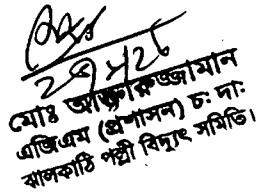 ২৭/৮/২৫
মোঃ আক্তারুজ্জামান
এজিএম (প্রশাসন) চঃ দাঃ
ঝালকাঠি পল্লী বিদ্যুৎ সমিতি।